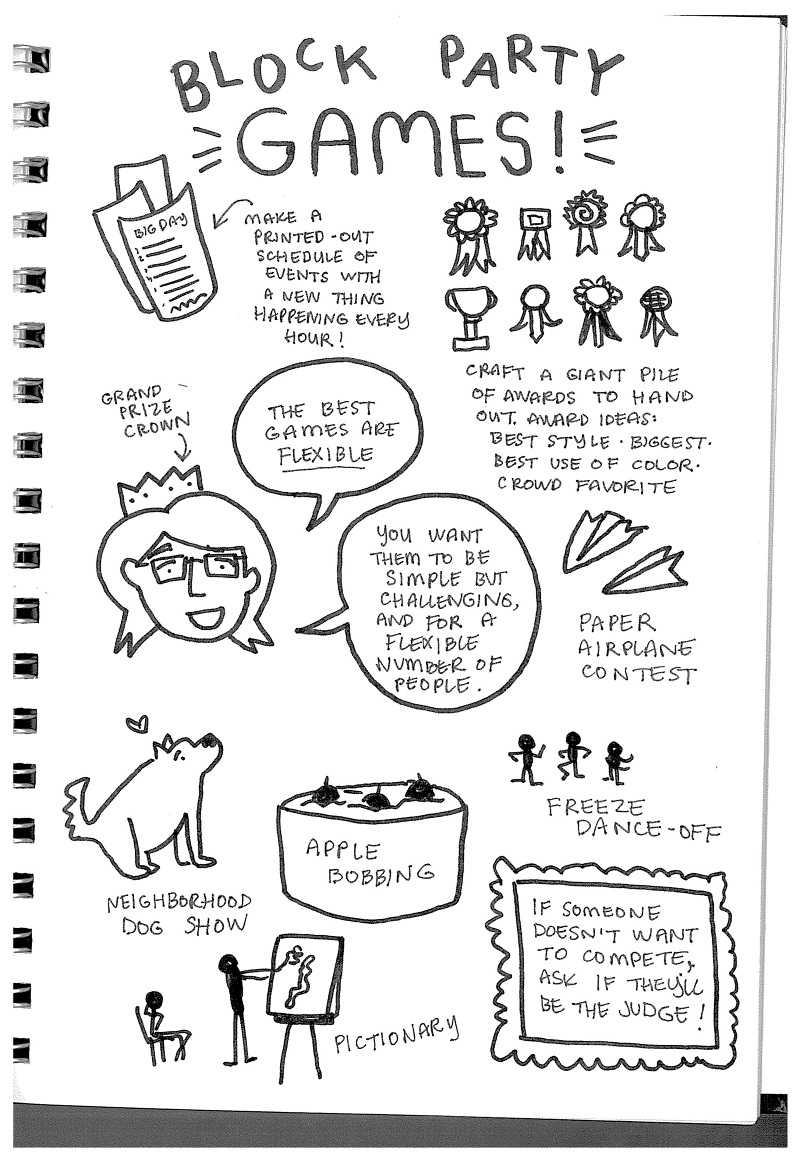 BLOCK PARTY
GAMES!
BIG DAY
MAKE A
PRINTED-OUT
SCHEDULE OF
EVENTS WITH
A NEW THING
HAPPENING EVERY
HOUR!
CRAFT A GIANT PILE
OF AWARDS TO HAND
OUT. AWARD IDEAS:
BEST STYLE · BIGGEST ·
BEST USE OF COLOR ·
CROWD FAVORITE
GRAND
PRIZE
CROWN
THE BEST
GAMES ARE
FLEXIBLE
YOU WANT
THEM TO BE
SIMPLE BUT
CHALLENGING,
AND FOR A
FLEXIBLE
NUMBER OF
PEOPLE.
PAPER
AIRPLANE
CONTEST
NEIGHBORHOOD
DOG SHOW
APPLE
BOBBING
FREEZE
DANCE-OFF
PICTIONARY
IF SOMEONE
DOESN'T WANT
TO COMPETE,
ASK IF THEY'LL
BE THE JUDGE!